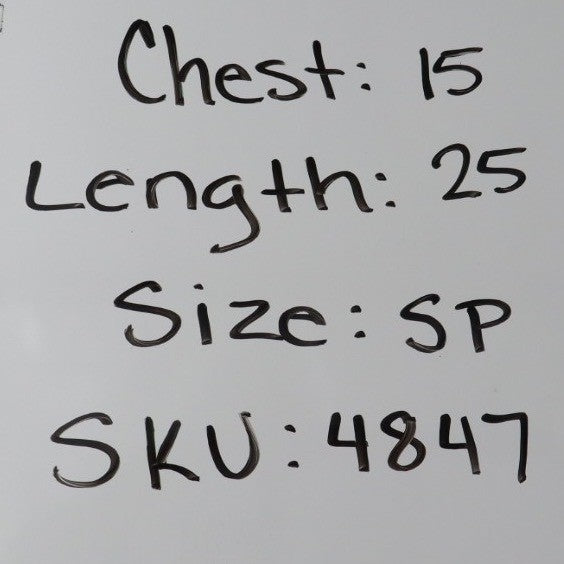 Chest: 15
Length: 25
Size: SP
SKU: 4847